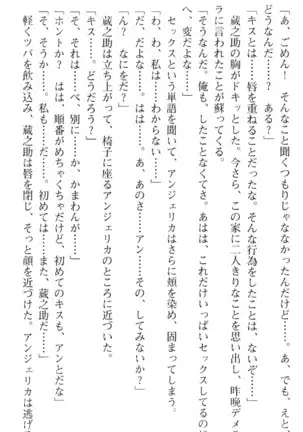 「あ、ごめん！　そんなこと聞くつもりじゃなかったんだけど……。あ、でも、えと、
どうなんだ……？　ある？」
「キスとは……唇を重ねることだったな。そんな行為をしたことは、ないぞ……」
　蔵之助の胸がドキッとした。今さら、この家に二人きりなことを思い出し、昨晩デメ
ラに言われたことが蘇ってくる。
「そうなんだ。俺も、したことなくてさ。あはは、これだけいっぱいセックスしてるのに
へ、変だよな……」
　セックスという単語を聞いて、アンジェリカはさらに頬を染め、固まってしまう。
「わ、わ、私は……わからない……」
「だ、だよな……。は……。あ、あのさ……アン……」
「ん？　なにをだ？」
「キス……。どうだろう？」
　蔵之助は立ち上がって、椅子に座るアンジェリカのところに近づいた。
「そ、それは……べ、別に……か、かまわんが……」
「ホントか？　はは、順番がめちゃくちゃだけど、初めてのキスも、アンとだな」
「そ、そうか……。私も……だ……。初めては……また、蔵之助だ……」
　軽くツバを飲み込み、蔵之助は唇を閉じ、そっと顔を近づけた。アンジェリカは逃げる